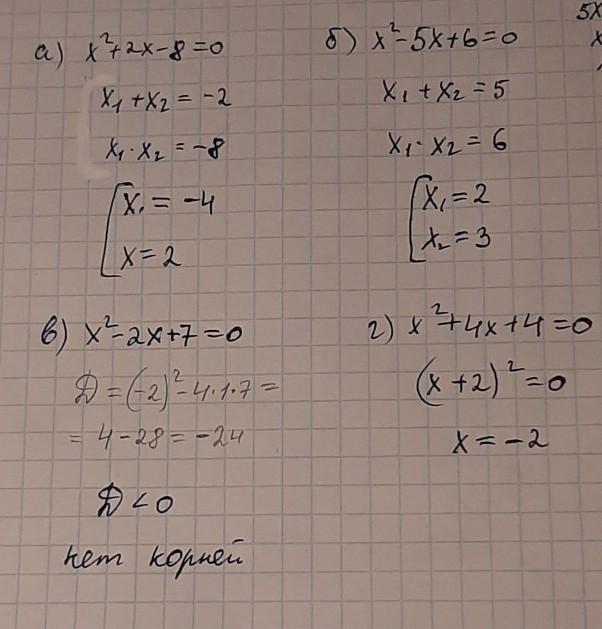 а) x²+2x-8=0
x₁+x₂=-2
x₁·x₂=-8
x₁=-4
x=2
б) x²-5x+6=0
x₁+x₂=5
x₁·x₂=6
x₁=2
x₂=3
в) x²-2x+7=0
D=(-2)²-4·1·7=
=4-28=-24
D<0
нет корней
г) x²+4x+4=0
(x+2)²=0
x=-2
5x